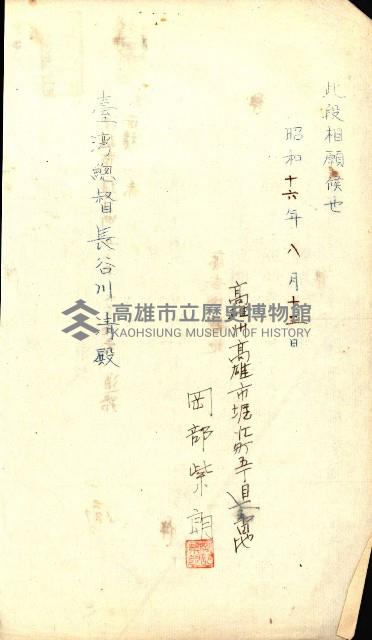 此段相願候也
昭和十六年八月十五日
高雄州高雄市堀江町五丁目
岡部紫朗
臺灣總督長谷川清殿
高雄市立歷史博物館
KAOHSIUNG MUSEUM OF HISTORY